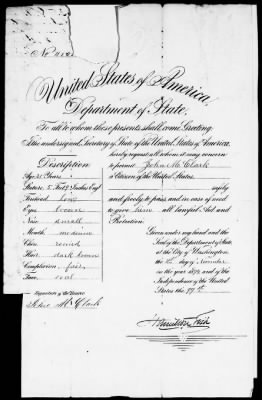 United States of America,
Department of State,
To all to whom these presents shall come, Greeting:
I the undersigned, Secretary of State of the United States of America,
hereby request all whom it may concern
Description
to permit John M. Clark
Age Years
a Citizen of the United States
Stature 5 Feet Inches Eng.
safely
Forehead low
and freely to pass, and in case of need
Eyes brown
to give him all lawful Aid and
Nose small
Protection.
Mouth medium
Given under my hand and the
Chin round
Seal of the Department of State
Hair dark brown
at the City of Washington,
Complexion fair
the day of November
Face oval
in the year 187 and of the
Independence of the United
Signature of the Bearer
States the 99th
John M. Clark
Hamilton Fish